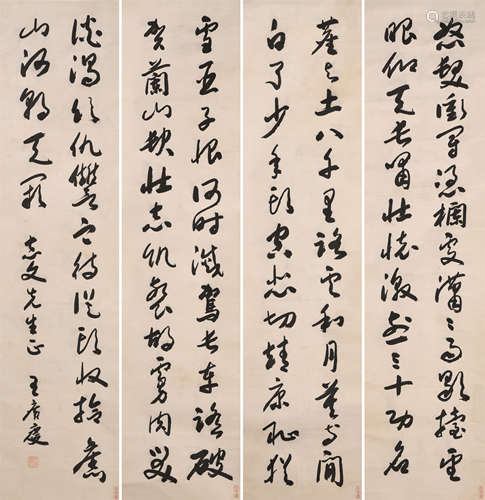 怒髮衝冠憑欄處瀟々雨歇擡望
眼仰天長嘯壯懷激烈三十功名
塵與土八千里路雲和月莫等閒
白了少年頭空悲切靖康恥猶
雪臣子恨何時滅駕長車踏破
賀蘭山缺壯志飢餐胡虜肉笑
談渴飲仇讐血待從頭收拾舊
山河朝天闕
志文先生正 王